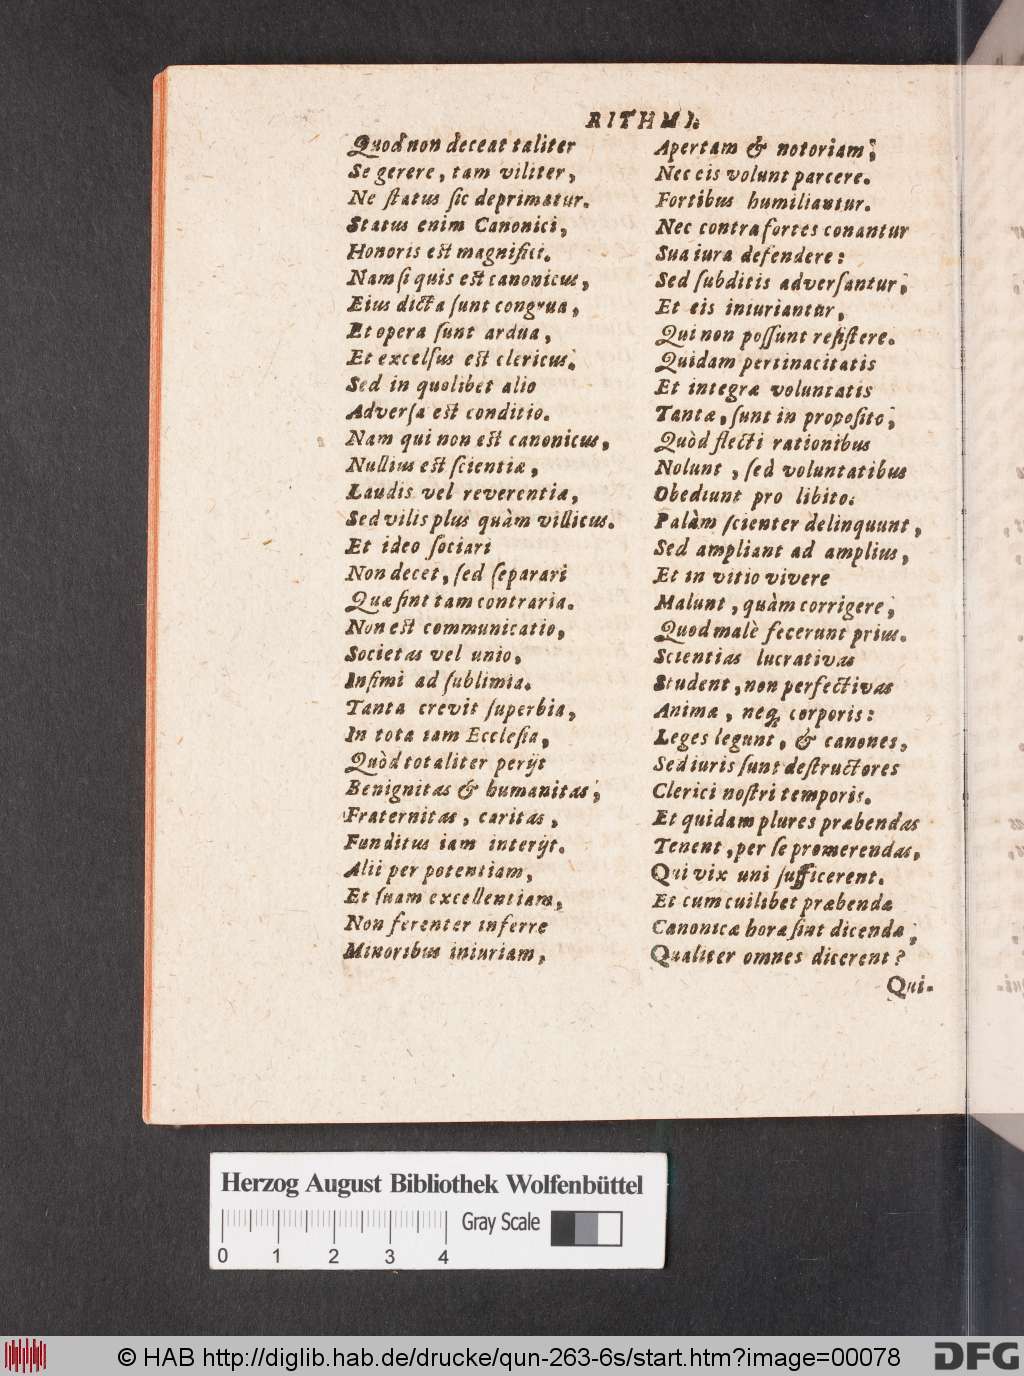 RITHMI.
Quod non deceat taliter
Se gerere, tam viliter,
Ne ſtatus ſic deprimatur.
Status enim Canonici,
Honoris eſt magnifici.
Nam ſi quis eſt canonicus,
Eius dicta ſunt congrua,
Et opera ſunt ardua,
Et excelſus eſt clericus;
Sed in quolibet alio
Adverſa eſt conditio.
Nam qui non eſt canonicus,
Nullius eſt ſcientiæ,
Laudis vel reverentiæ,
Sed vilis plus quàm villicus.
Et ideo ſociari
Non decet, ſed ſeparari
Quæ ſint tam contraria.
Non eſt communicatio,
Societas vel unio,
Infimi ad ſublimia.
Tanta crevit ſuperbia,
In tota iam Eccleſia,
Quòd totaliter perijt
Benignitas & humanitas;
Fraternitas, caritas,
Funditus iam interijt.
Alii per potentiam,
Et ſuam excellentiam,
Non ferenter inferre
Minoribus iniuriam,
Apertam & notoriam;
Nec eis volunt parcere.
Fortibus humiliantur.
Nec contra fortes conantur
Sua iura defendere:
Sed ſubditis adverſantur;
Et eis iniuriantur,
Qui non poſſunt reſiſtere.
Quidam pertinacitatis
Et integræ voluntatis
Tantæ, ſunt in propoſito;
Quòd flecti rationibus
Nolunt, ſed voluntatibus
Obediunt pro libito:
Palàm ſcienter delinquunt,
Sed ampliant ad amplius,
Et in vitio vivere
Malunt, quàm corrigere;
Quod malè fecerunt prius.
Scientias lucrativas
Student, non perfectivas
Animæ, neq; corporis:
Leges legunt, & canones,
Sed iuris ſunt deſtructores
Clerici noſtri temporis.
Et quidam plures præbendas
Tenent, per ſe promerendas,
Qui vix uni ſufficerent.
Et cum cuilibet præbendæ
Canonicæ horæ ſint dicendæ;
Qualiter omnes dicerent?
Qui.
Herzog August Bibliothek Wolfenbüttel
Gray Scale
0 1 2 3 4
© HAB http://diglib.hab.de/drucke/qun-263-6s/start.htm?image=00078
DFG